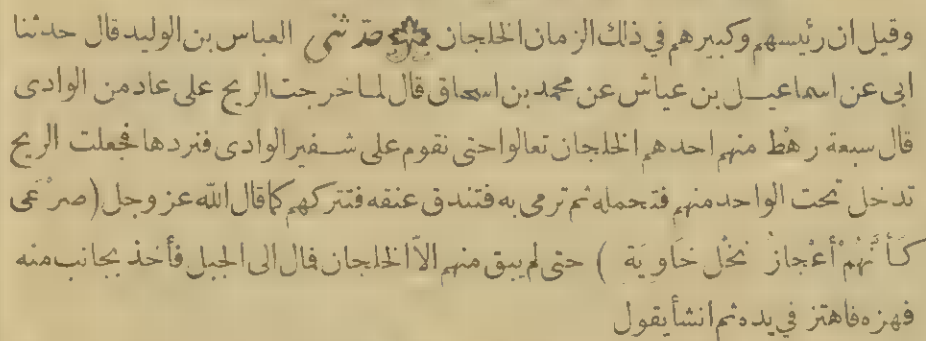 وقيل ان رئيسهم وكبيرهم في ذلك الزمان الخلجان حدثني العباس بن الوليد قال حدثنا
ابى عن اسماعيـــل بن عياش عن محمد بن اسحاق قال لما خرجت الريح على عاد من الوادى
قال سبعة رهْط منهم احدهم الخلجان تعالوا حتى نقوم على شــفير الوادى فنردها فجعلت الريح
تدخل تحت الواحد منهم فتحمله ثم ترمى به فتندق عنقه فتتركهم كما قال الله عز وجل (صرْعَى
كَأَنَّهُمْ أَعْجازُ نَخْل خَاوِيَة ) حتى لم يبق منهم الاّ الخلجان فمال الى الجبل فأخذ بجانب منه
فهزه فاهتز في يده ثم انشأ يقول